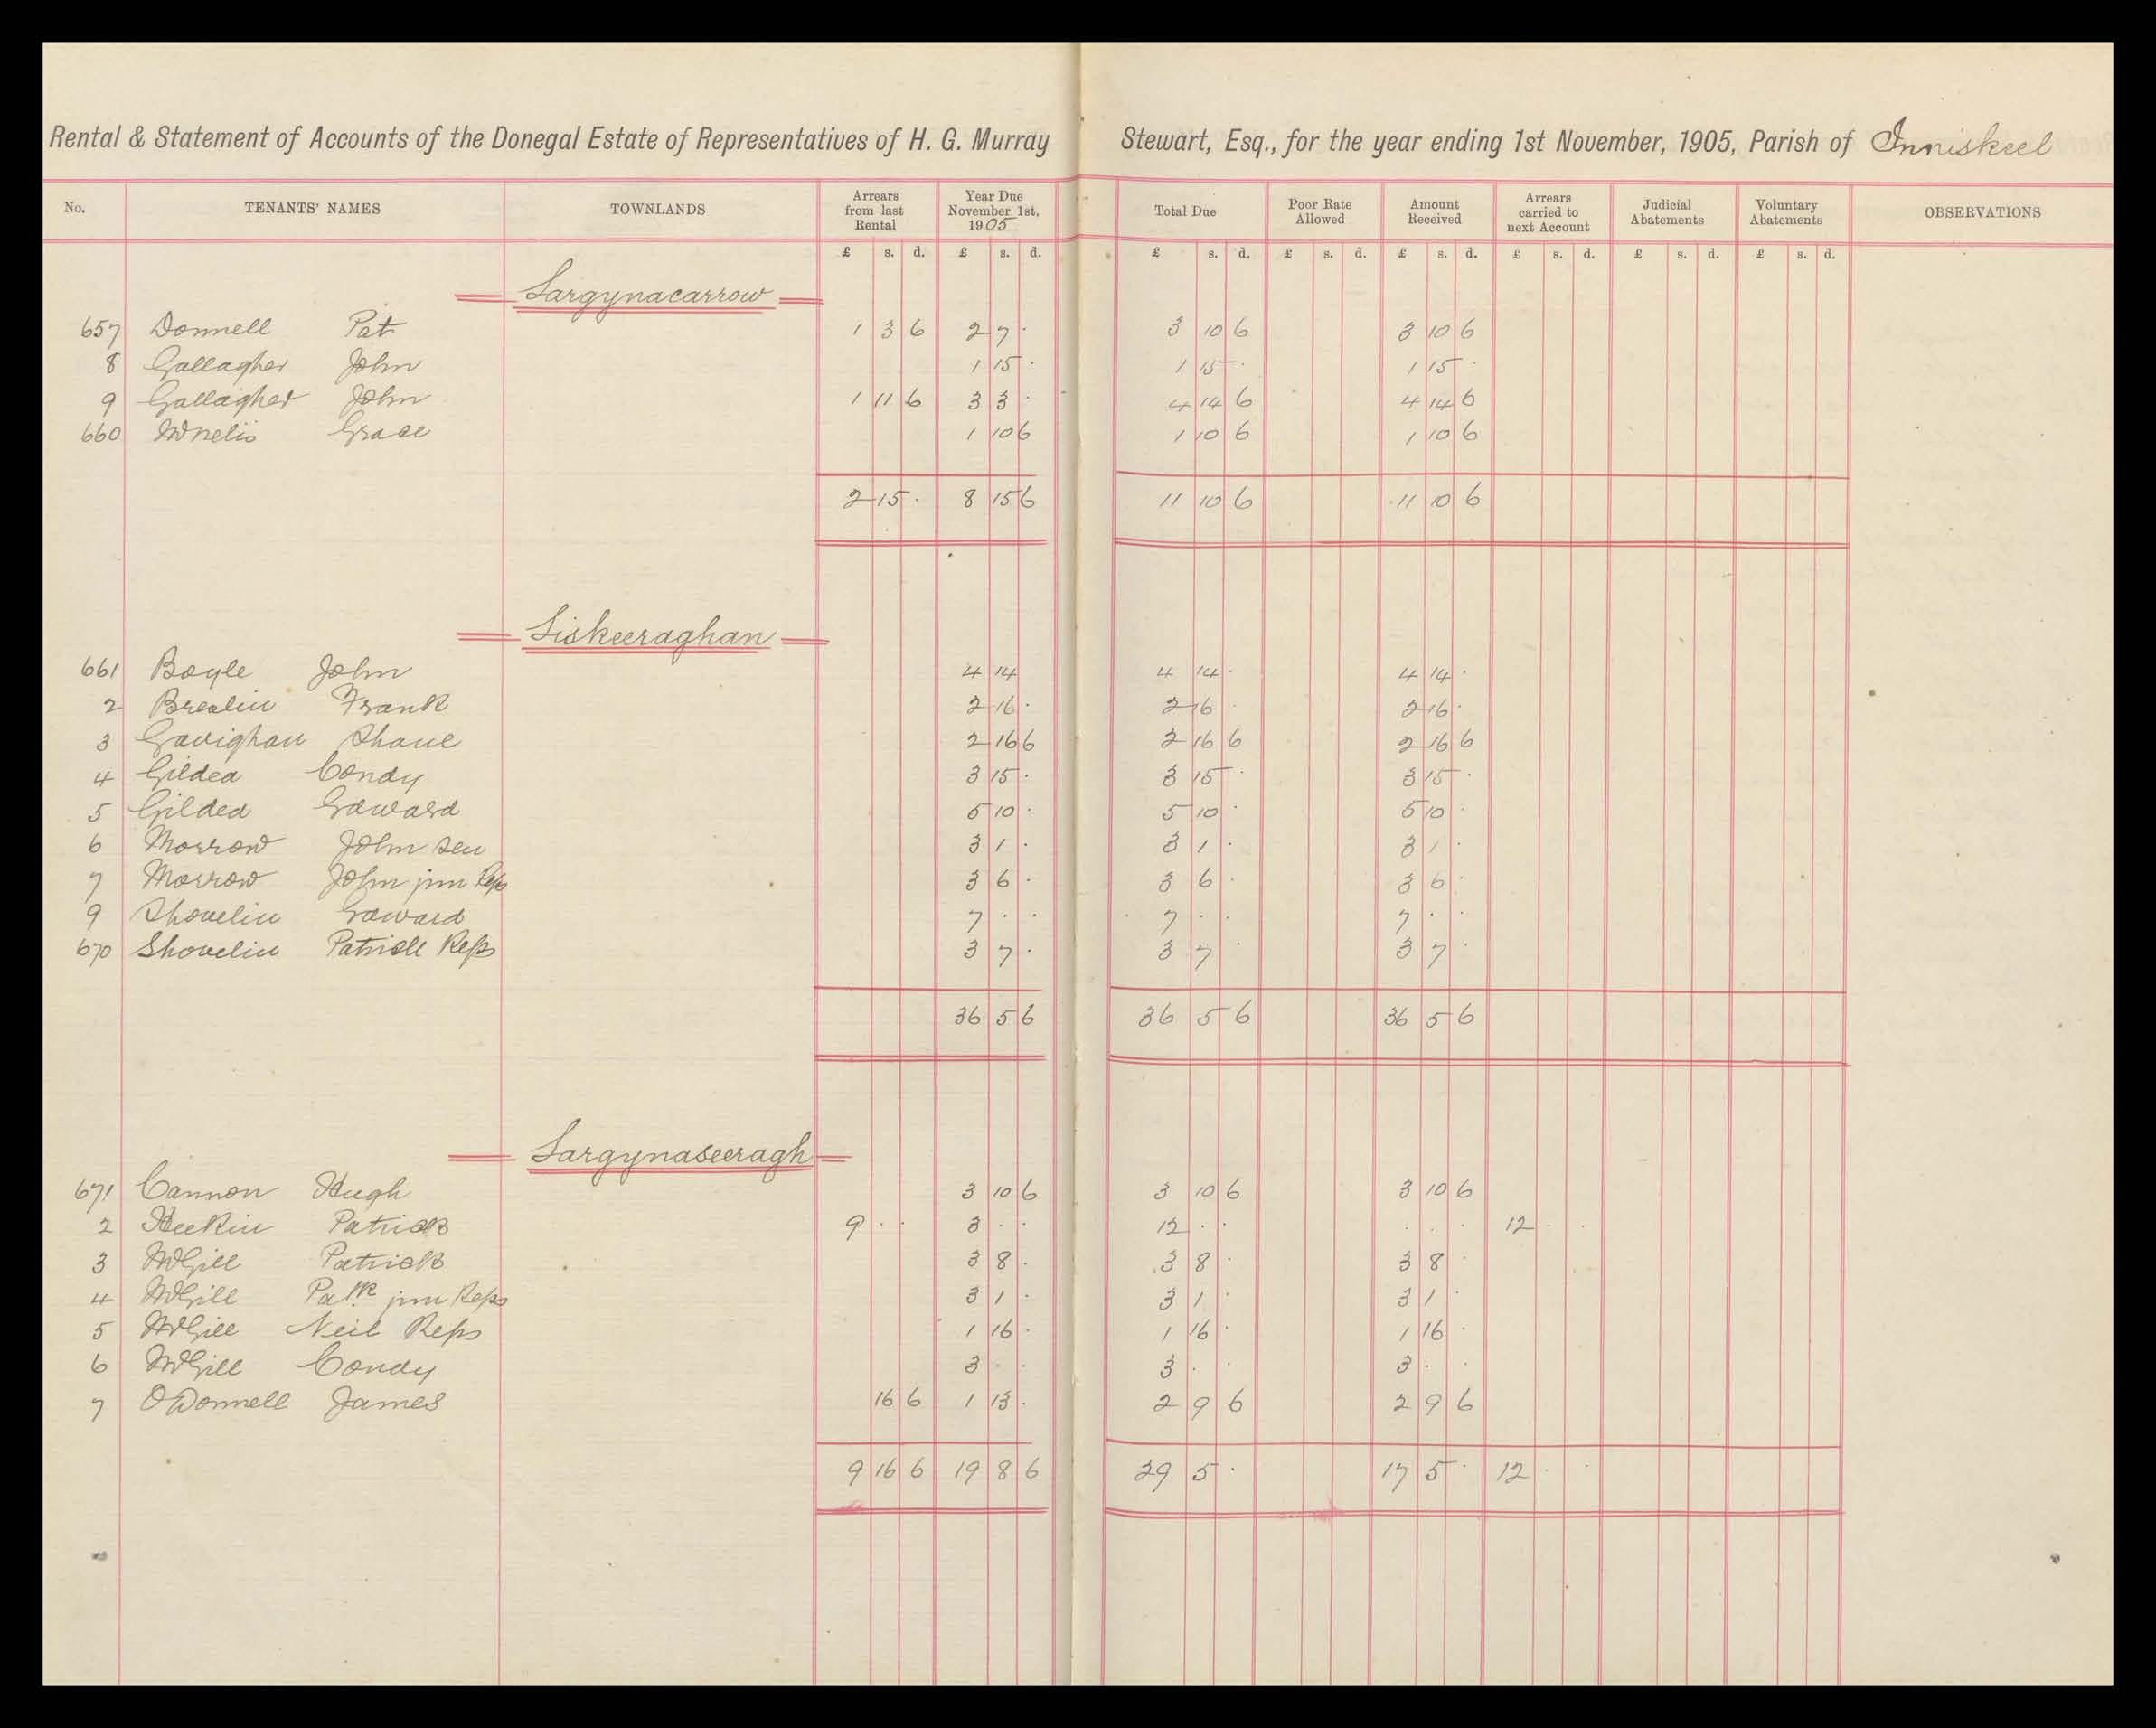 Rental & Statement of Accounts of the Donegal Estate of Representatives of H. G. Murray Stewart, Esq., for the year ending 1st November, 1905, Parish of Inniskeel
No. TENANTS' NAMES TOWNLANDS Arrears from last Rental Year Due November 1st, 1905 Total Due Poor Rate Allowed Amount Received Arrears carried to next Account Judicial Abatements Voluntary Abatements OBSERVATIONS
£ s. d. £ s. d. £ s. d. £ s. d. £ s. d. £ s. d. £ s. d. £ s. d.
Largynacarrow
657 Donnell Pat 1 3 6 2 7 · 3 10 6 3 10 6
8 Gallagher John 1 15 · 1 15 · 1 15 ·
9 Gallagher John 1 11 6 3 3 · 4 14 6 4 14 6
660 McNelis Grace 1 10 6 1 10 6 1 10 6
2 15 · 8 15 6 11 10 6 11 10 6
Liskeeraghan
661 Boyle John 4 14 4 14 · 4 14 ·
2 Breslin Frank 2 16 · 2 16 · 2 16 ·
3 Gavighan Shane 2 16 6 2 16 6 2 16 6
4 Gildea Condy 3 15 · 3 15 · 3 15 ·
5 Gildea Edward 5 10 · 5 10 · 5 10 ·
6 Morrow John sen 3 1 · 3 1 · 3 1 ·
7 Morrow John jun Reps 3 6 · 3 6 · 3 6 ·
9 Shovelin Edward 7 · · 7 · · 7 · ·
670 Shovelin Patrick Reps 3 7 · 3 7 · 3 7 ·
36 5 6 36 5 6 36 5 6
Largynaseeragh
671 Cannon Hugh 3 10 6 3 10 6 3 10 6
2 Heekin Patrick 9 · · 3 · · 12 · · · · · 12 · ·
3 McGill Patrick 3 8 · 3 8 · 3 8 ·
4 McGill Patk jun Reps 3 1 · 3 1 · 3 1 ·
5 McGill Neil Reps 1 16 · 1 16 · 1 16 ·
6 McGill Condy 3 · · 3 · · 3 · ·
7 O'Donnell James 16 6 1 13 · 2 9 6 2 9 6
9 16 6 19 8 6 29 5 · 17 5 · 12 · ·